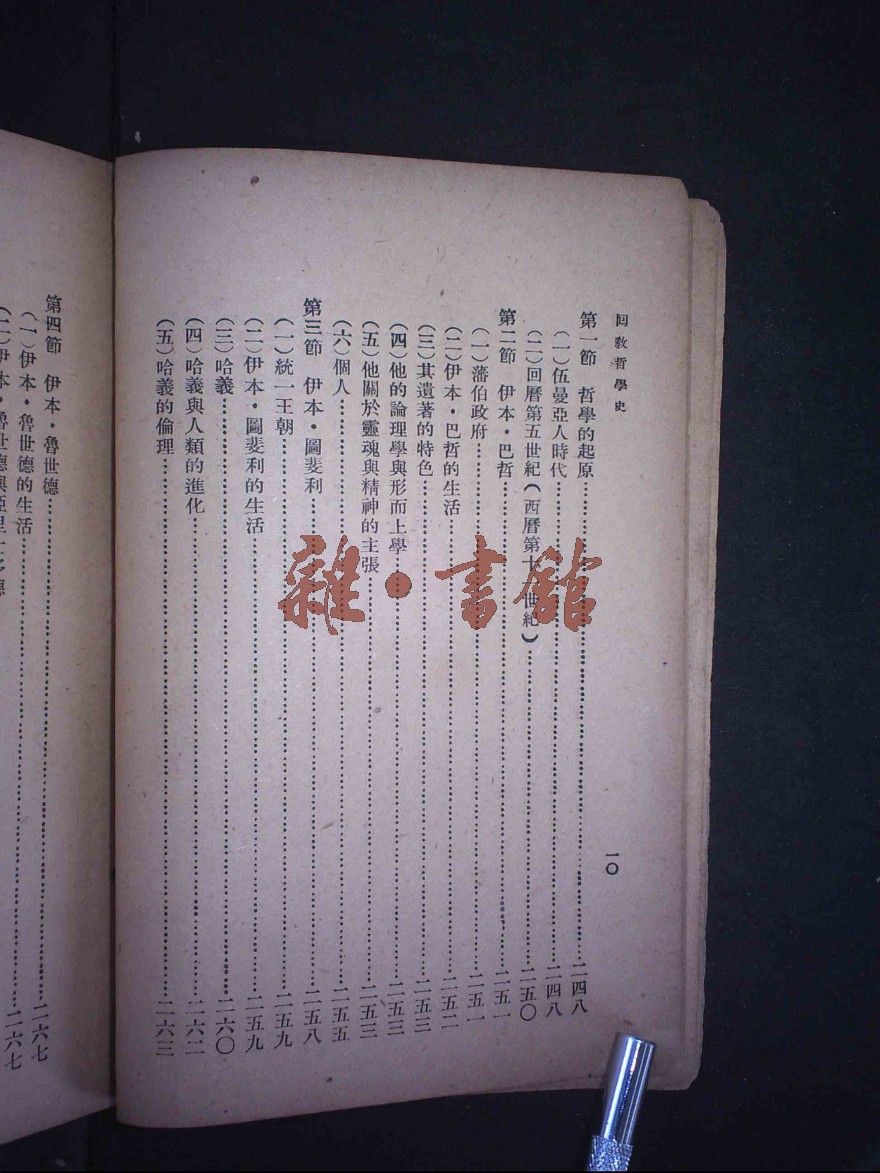 回教哲學史
一〇
第一節 哲學的起原……二四八
(一)伍曼亞人時代……二四八
(二)回曆第五世紀(西曆第十 世紀)……二五〇
第二節 伊本・巴哲……二五一
(一)藩伯政府……二五一
(二)伊本・巴哲的生活……二五二
(三)其遺著的特色……二五三
(四)他的論理學與形而上學……二五三
(五)他關於靈魂與精神的主張……二五三
(六)個人……二五五
第三節 伊本・圖斐利……二五八
(一)統一王朝……二五九
(二)伊本・圖斐利的生活……二五九
(三)哈義……二六〇
(四)哈義與人類的進化……二六二
(五)哈義的倫理……二六三
第四節 伊本・魯世德……二六七
(一)伊本・魯世德的生活……二六七
(二)伊本・魯世德與亞里士多德
雜・書館